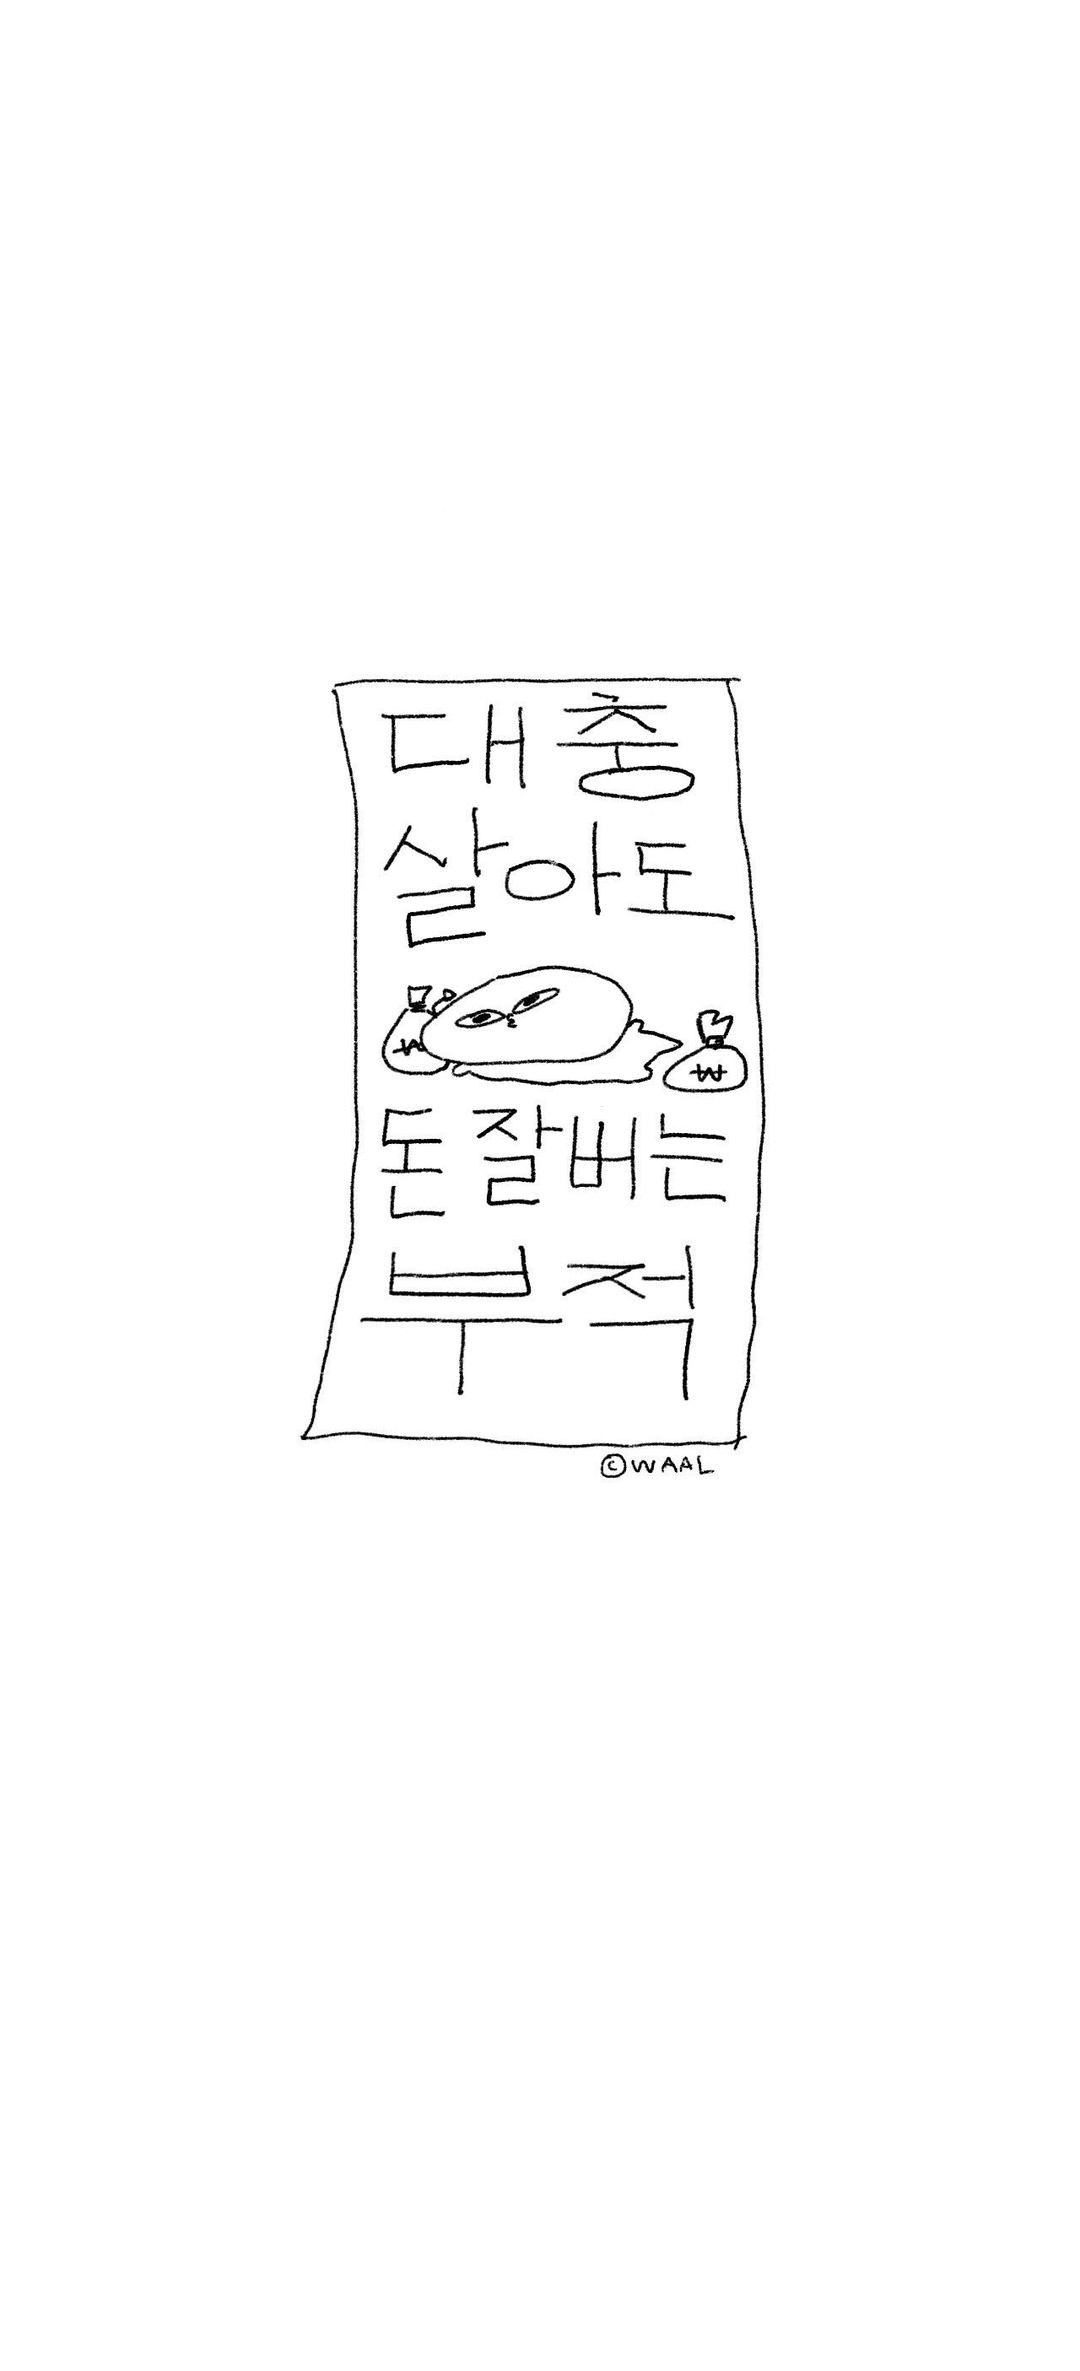 대충
살아도
₩ ₩
돈 잘버는
부적
©WAAL